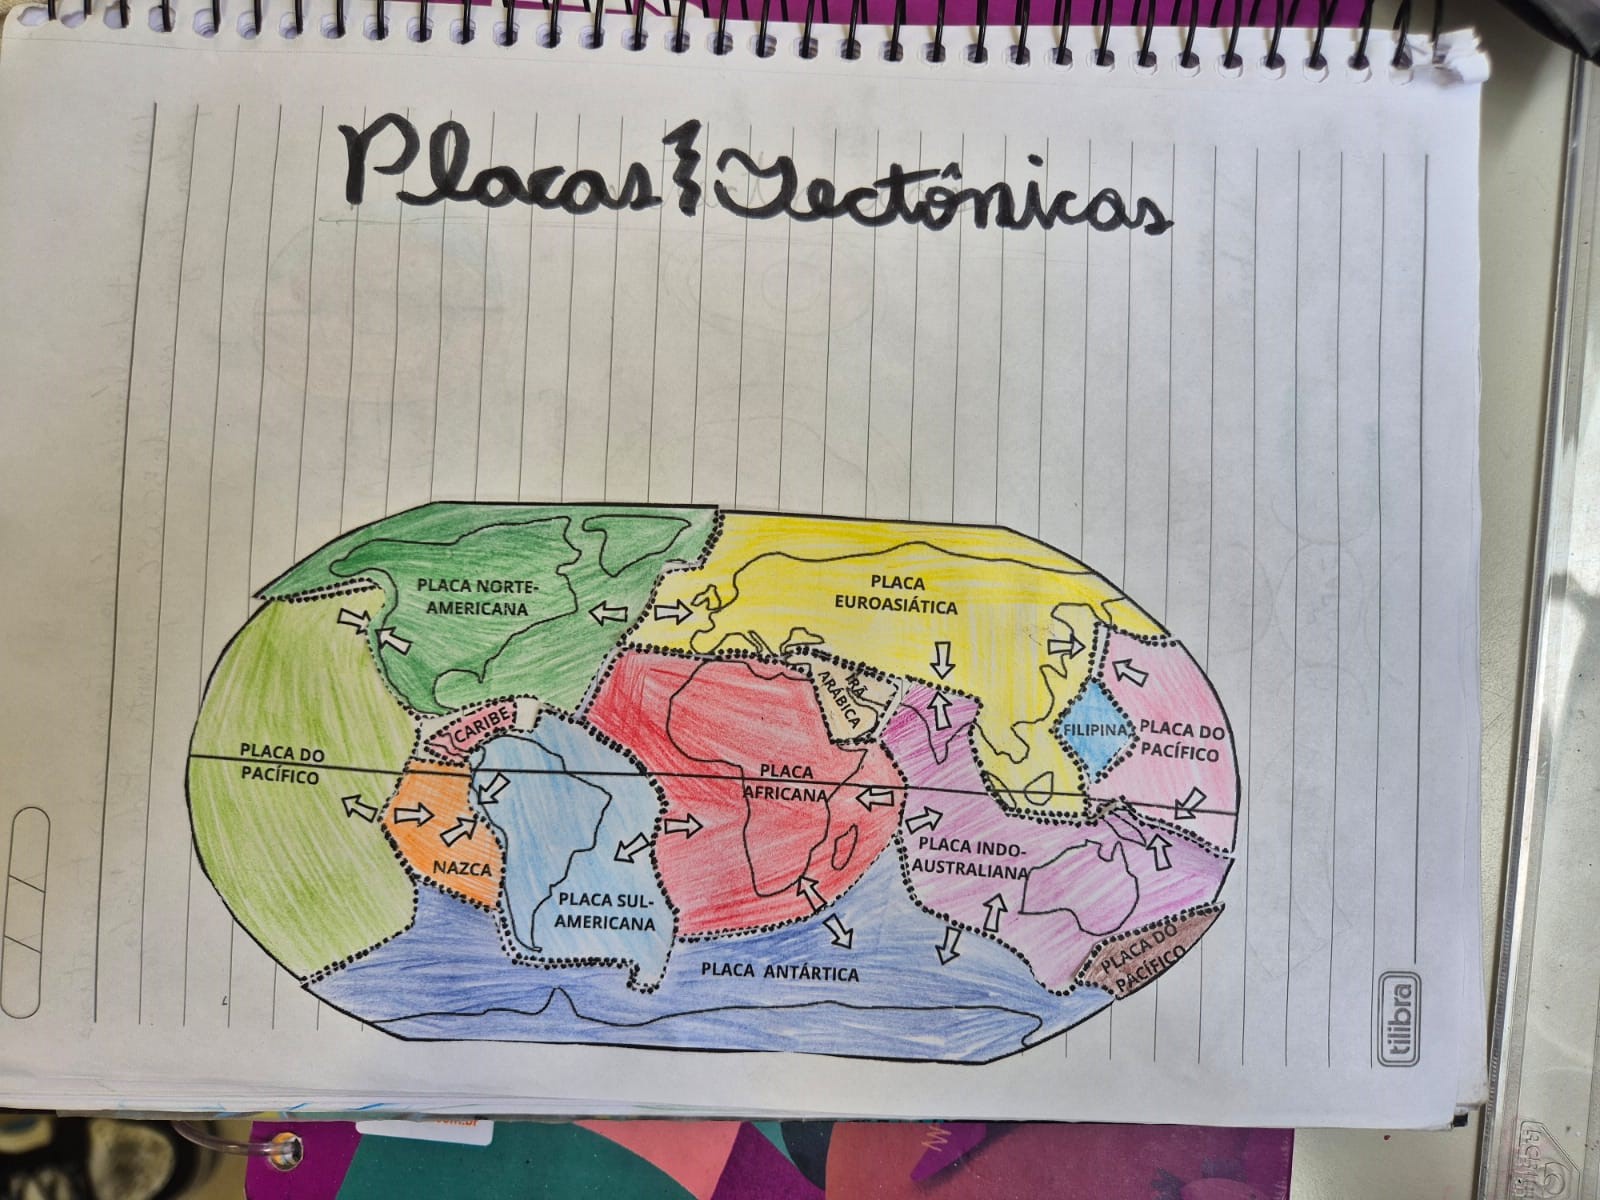 Placas Tectônicas
PLACA NORTE-
AMERICANA
PLACA
EUROASIÁTICA
IRÃ
ARÁBICA
CARIBE
FILIPINA
PLACA DO
PACÍFICO
PLACA DO
PACÍFICO
PLACA
AFRICANA
NAZCA
PLACA INDO-
AUSTRALIANA
PLACA SUL-
AMERICANA
PLACA ANTÁRTICA
PLACA DO
PACÍFICO
tilibra